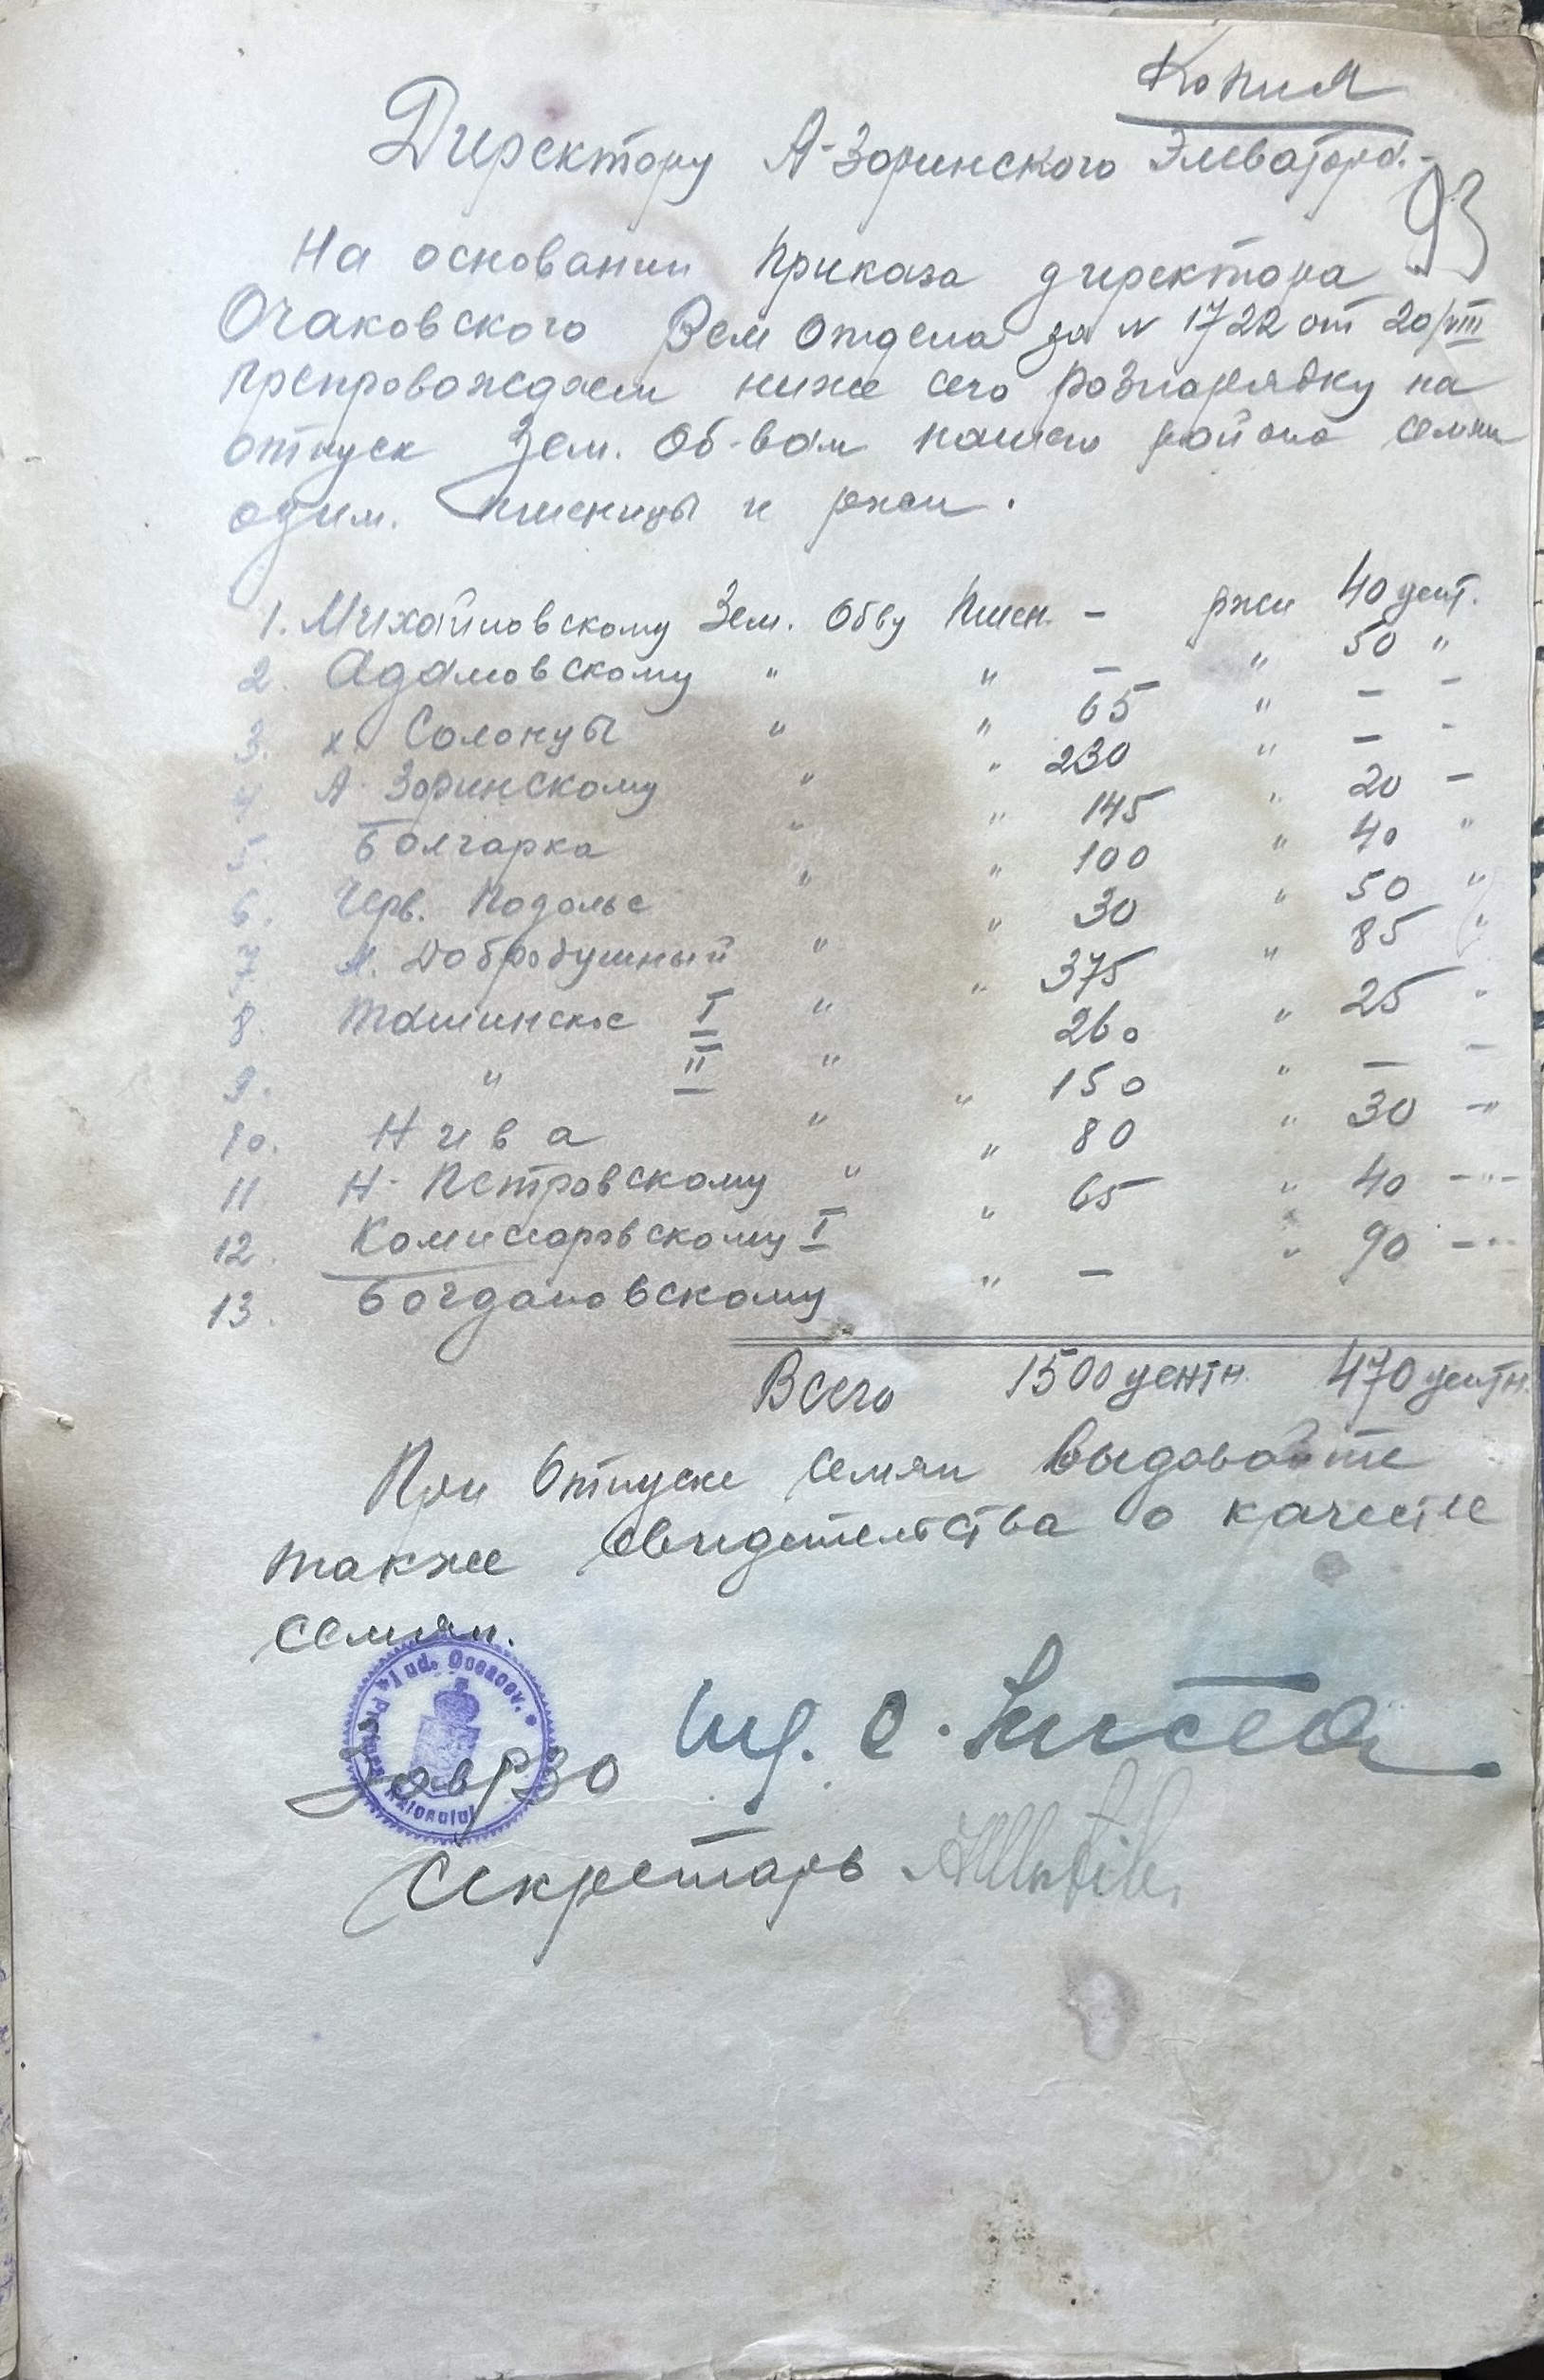 Копия
Директору А-Зоринского Элеватора.
93
На основании приказа директора
Очаковского Зем отдела за N 1722 от 20/VIII
препровождаем ниже сего разнарядку на
отпуск Зем. Об-вам нашего района семян
озим. пшеницы и ржи.
1. Михайловскому Зем. Обву Пшен. – ржи 40 цент.
2. Адамовскому " " – " 50 "
3. х. Солонцы " " 65 " – –
4 А Зоринскому " " 230 " – -
5. Болгарка " " 145 " 20 –
6. Черв. Подолье " " 100 " 40 "
7 М. Добродушный " " 30 " 50 "
8. Ташинское I " " 375 " 85 "
9. " II " 260 " 25 "
10. Нива " " 150 " – –
11 Н- Петровскому " " 80 " 30 –"
12. Комиссаровскому I " 65 " 40 –"–
13. Богдановскому " – " 90 –"
Всего 1500 центн. 470 центн.
При отпуске семян выдавайте
также свидетельства о качестве
семян.
ud. Oceacov.
Raionului
Зав РЗО
Секретарь